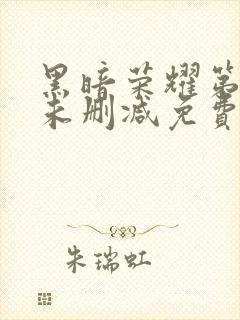 黑暗荣耀第
未删减免費
朱瑞虹